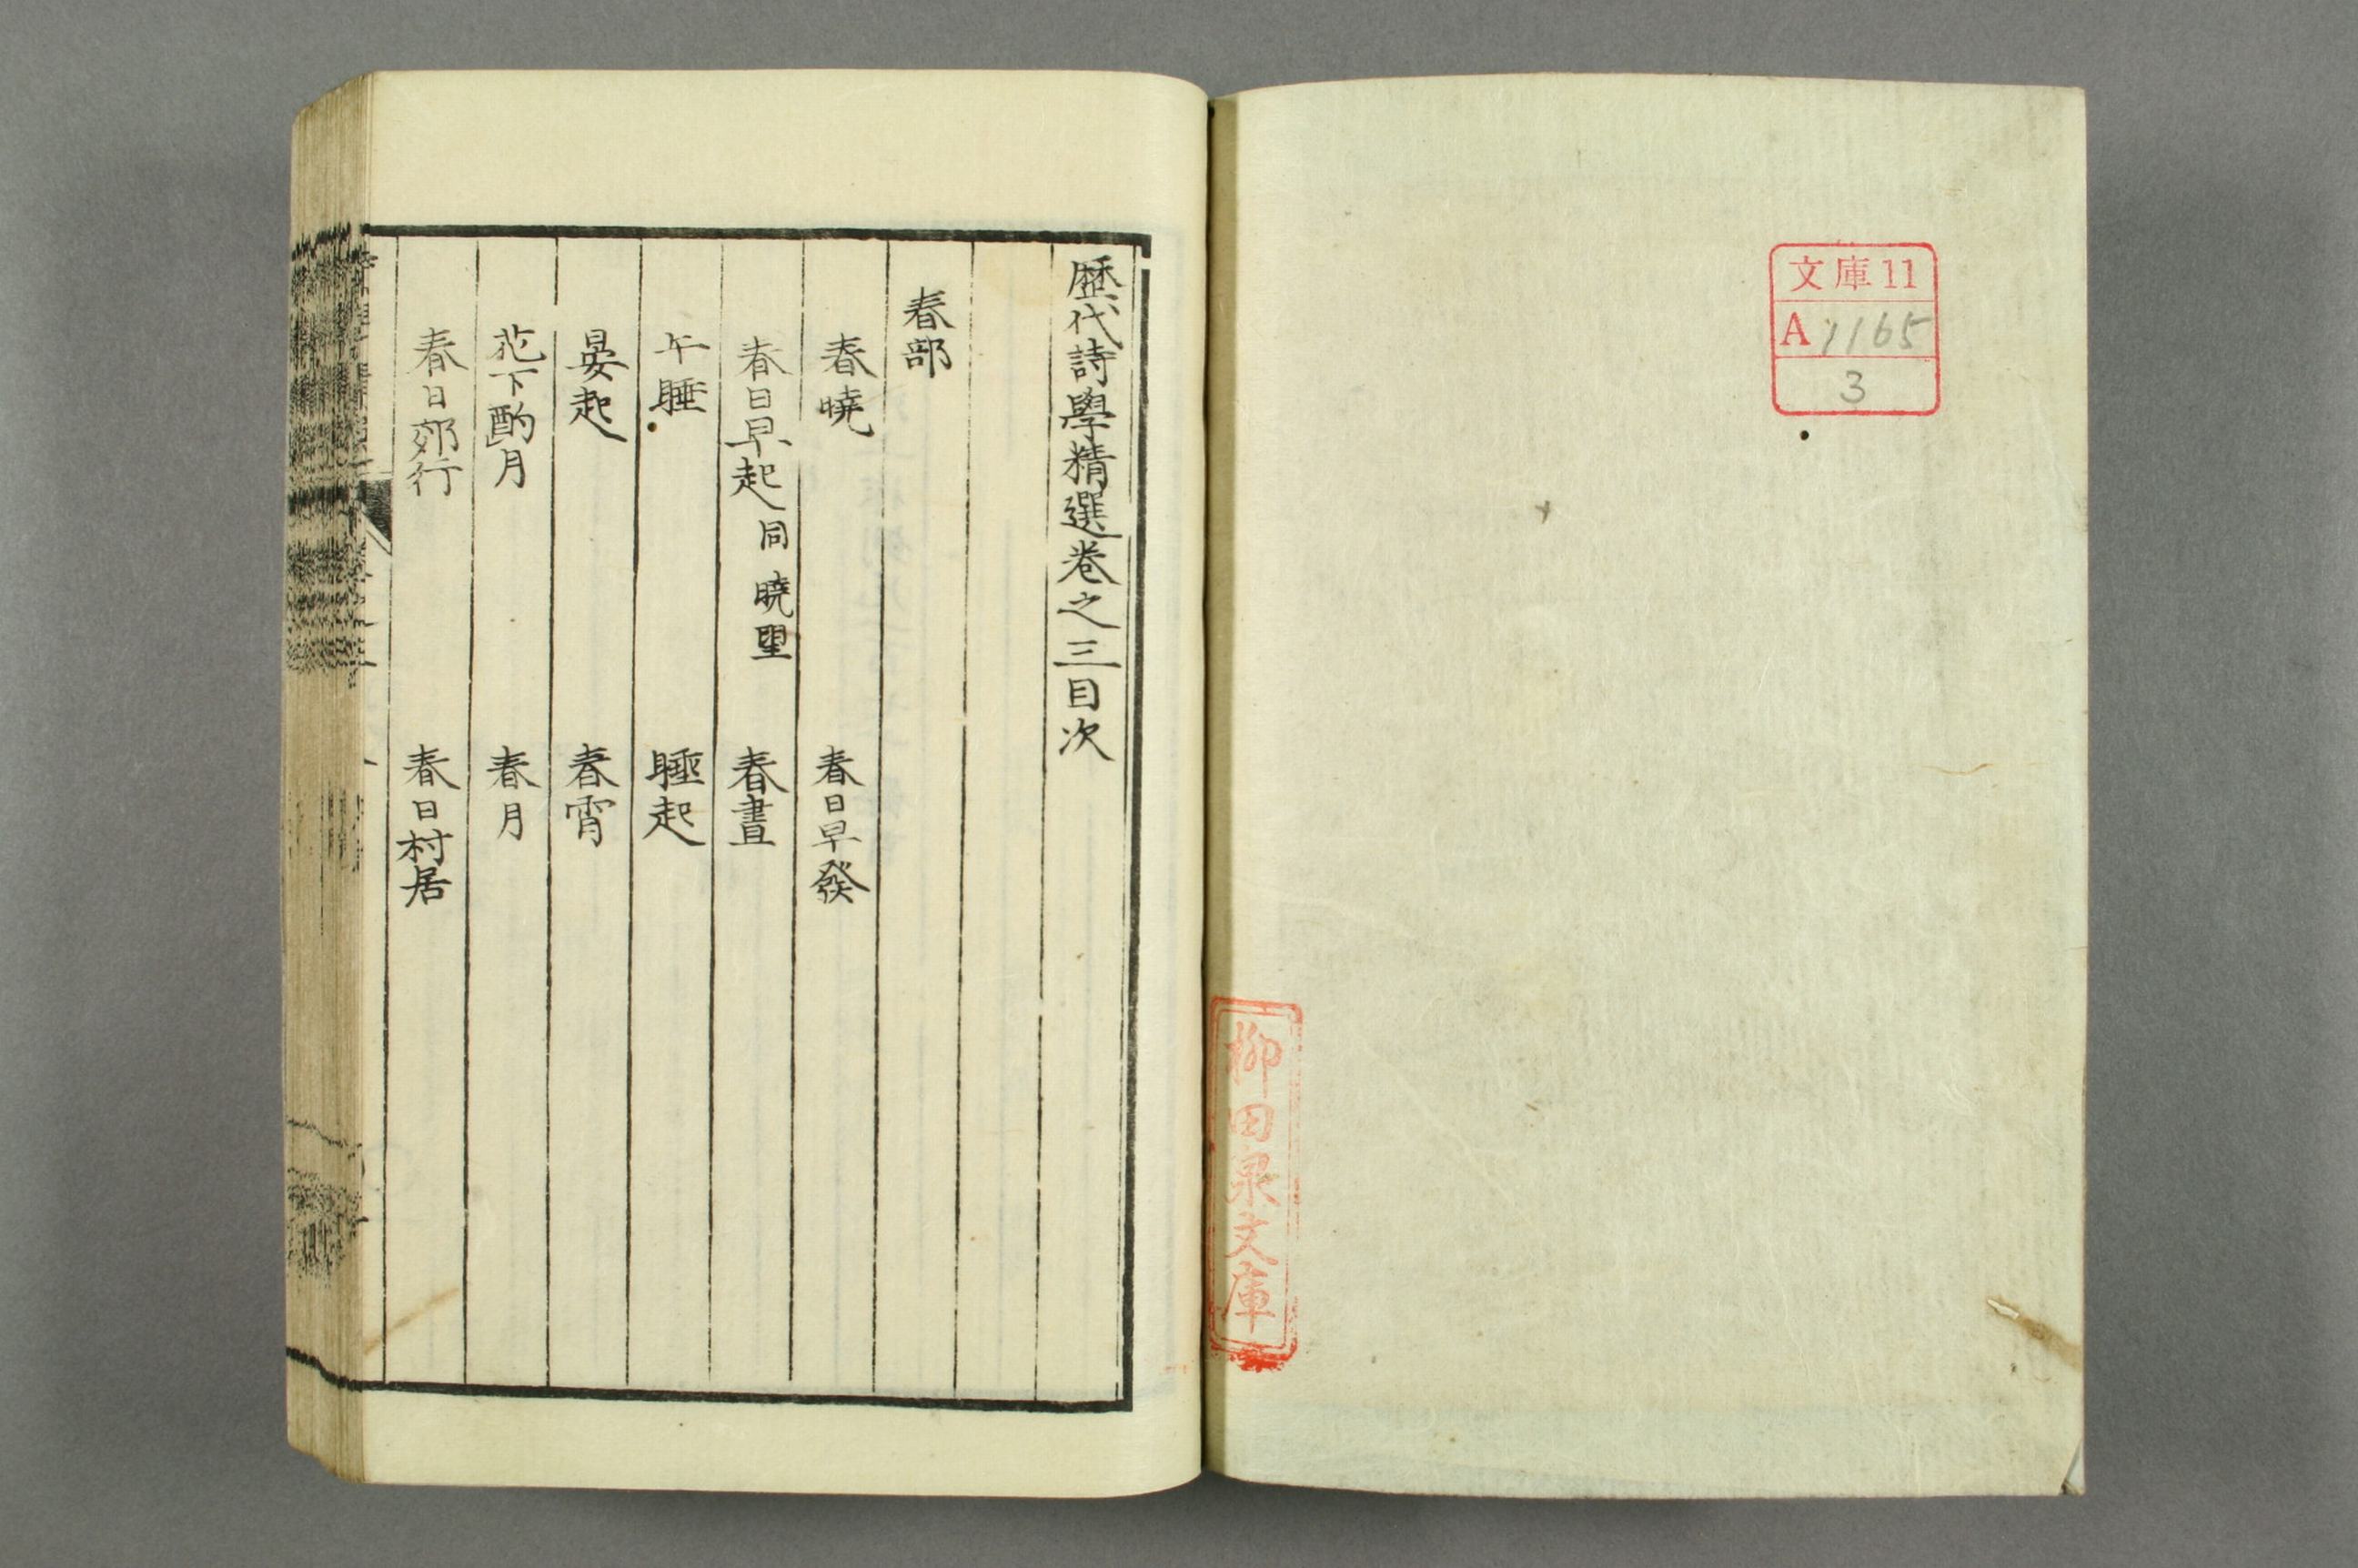 文庫11
A 1165
3
柳田泉文庫
歷代詩學精選卷之三目次
春部
春曉
春日早發
春日早起 同曉望
春晝
午睡
睡起
晏起
春宵
花下酌月
春月
春日郊行
春日村居